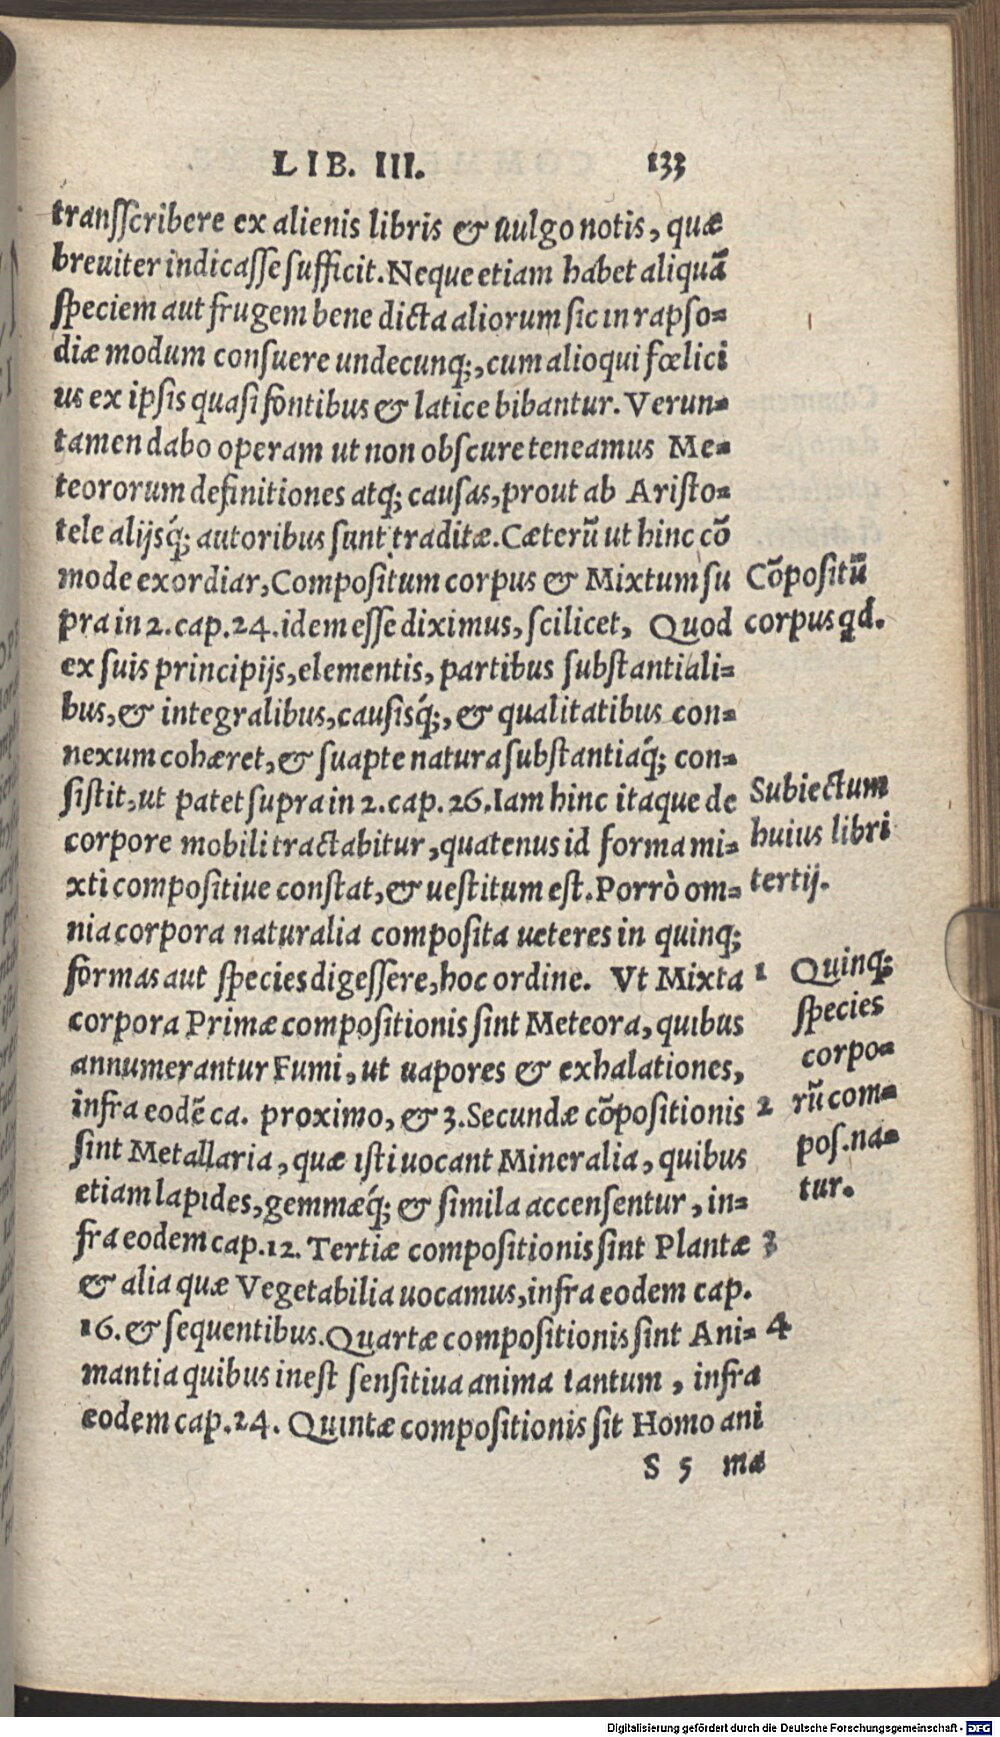 LIB. III. 133
transſcribere ex alienis libris & uulgo notis, quæ
breuiter indicaſſe ſufficit. Neque etiam habet aliquã
ſpeciem aut frugem bene dicta aliorum ſic in rapſo=
diæ modum conſuere undecunq;, cum alioqui fœlici
us ex ipſis quaſi fontibus & latice bibantur. Verun=
tamen dabo operam ut non obſcure teneamus Me=
teororum definitiones atq; cauſas, prout ab Ariſto=
tele alijsq́; autoribus ſunt traditæ. Cæterũ ut hinc cõ
mode exordiar, Compoſitum corpus & Mixtum ſu
Cõpoſitũ
pra in 2. cap. 24. idem eſſe diximus, ſcilicet, Quod
corpus qd.
ex ſuis principijs, elementis, partibus ſubſtantiali=
bus, & integralibus, cauſisq́;, & qualitatibus con=
nexum cohæret, & ſuapte natura ſubſtantiaq́; con=
ſiſtit, ut patet ſupra in 2. cap. 26. Iam hinc itaque de
Subiectum
corpore mobili tractabitur, quatenus id forma mi=
huius libri
xti compoſitiue conſtat, & ueſtitum eſt. Porrò om=
tertij.
nia corpora naturalia compoſita ueteres in quinq;
formas aut ſpecies digeſſere, hoc ordine. Vt Mixta
1 Quinq;
corpora Primæ compoſitionis ſint Meteora, quibus
ſpecies
annumerantur Fumi, ut uapores & exhalationes,
corpo=
infra eodẽ ca. proximo, & 3. Secundæ cõpoſitionis
2 rũ com=
ſint Metallaria, quæ iſti uocant Mineralia, quibus
poſ. na=
etiam lapides, gemmæq́; & ſimila accenſentur, in=
tur.
fra eodem cap. 12. Tertiæ compoſitionis ſint Plantæ
3
& alia quæ Vegetabilia uocamus, infra eodem cap.
16. & ſequentibus. Quartæ compoſitionis ſint Ani=
4
mantia quibus ineſt ſenſitiua anima tantum, infra
eodem cap. 24. Quintæ compoſitionis ſit Homo ani
S 5 mæ
Digitalisierung gefördert durch die Deutsche Forschungsgemeinschaft - DFG